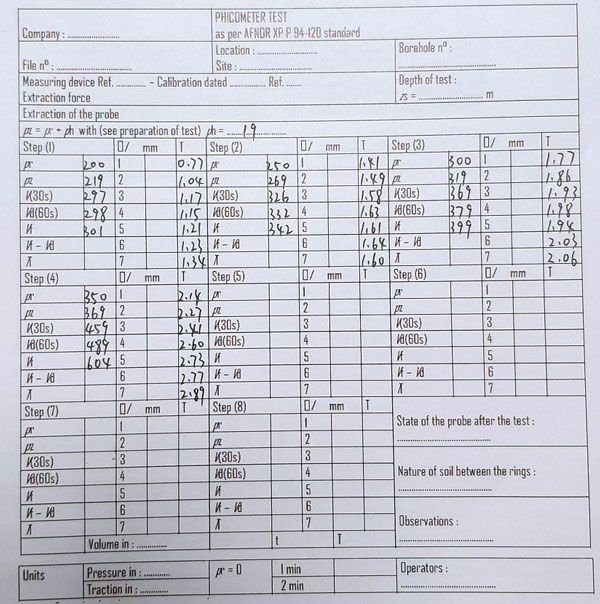 PHICOMETER TEST
Company : .............. as per AFNOR XP P 94-120 standard
Location : .............. Borehole nº :
File nº : .............. Site : ..............
Measuring device Ref. .......... - Calibration dated .............. Ref. ...... Depth of test :
Extraction force zs = .................... m
Extraction of the probe
pz = pr + ph with (see preparation of test) ph = ....19
Step (1) D/ mm T Step (2) D/ mm T Step (3) D/ mm T
pr 200 1 0.77 pr 250 1 1.41 pr 300 1 1.77
pz 219 2 1.04 pz 269 2 1.49 pz 319 2 1.86
(30s) 297 3 1.17 (30s) 326 3 1.58 (30s) 369 3 1.93
(60s) 298 4 1.15 (60s) 332 4 1.63 (60s) 379 4 1.98
301 5 1.21 342 5 1.61 399 5 1.94
6 1.23 6 1.64 6 2.03
7 1.34 7 1.60 7 2.06
Step (4) D/ mm T Step (5) D/ mm T Step (6) D/ mm T
pr 350 1 2.14 pr 1 pr 1
pz 369 2 2.27 pz 2 pz 2
(30s) 459 3 2.41 (30s) 3 (30s) 3
(60s) 489 4 2.60 (60s) 4 (60s) 4
604 5 2.73 5 5
6 2.77 6 6
7 2.89 7 7
Step (7) D/ mm T Step (8) D/ mm T
pr 1 pr 1 State of the probe after the test :
pz 2 pz 2
(30s) 3 (30s) 3
(60s) 4 (60s) 4 Nature of soil between the rings :
5 5
6 6 Observations :
7 7
Volume in : .............. t T
Units Pressure in : .......... pr = 0 1 min Operators :
Traction in : .......... 2 min